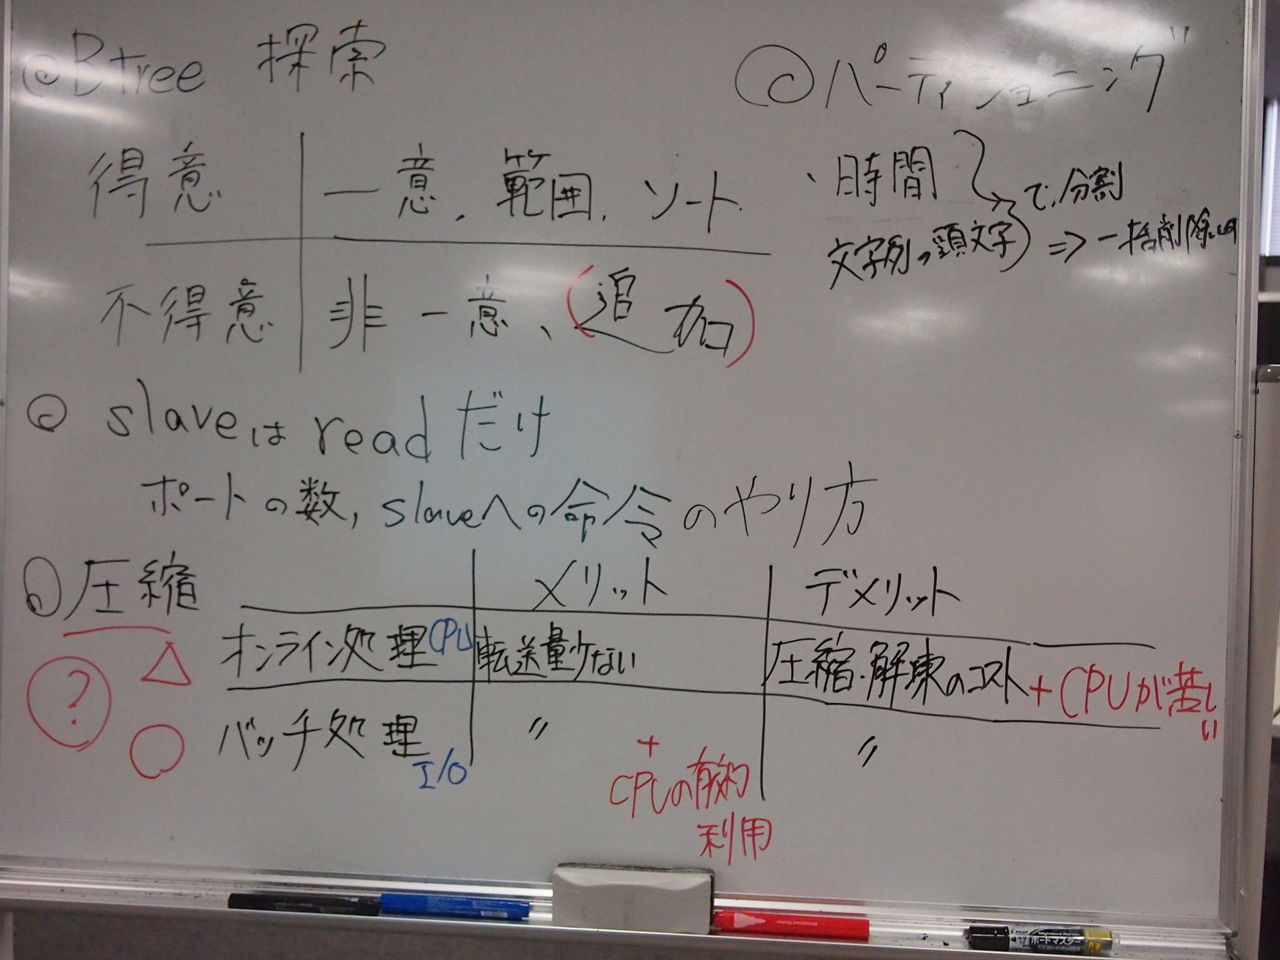 @Btree 探索
得意 一意, 範囲, ソート
不得意 非一意、(追加)
◎パーティショニング
・時間
文字列の頭文字) で分割
⇒一括削除
slaveはreadだけ
ポートの数, slaveへの命令のやり方
圧縮 メリット デメリット
? △ オンライン処理 CPU 転送量少ない 圧縮・解凍のコスト + CPUが苦しい
○ バッチ処理 I/O 〃 + CPUの有効利用 〃
ボードマスター